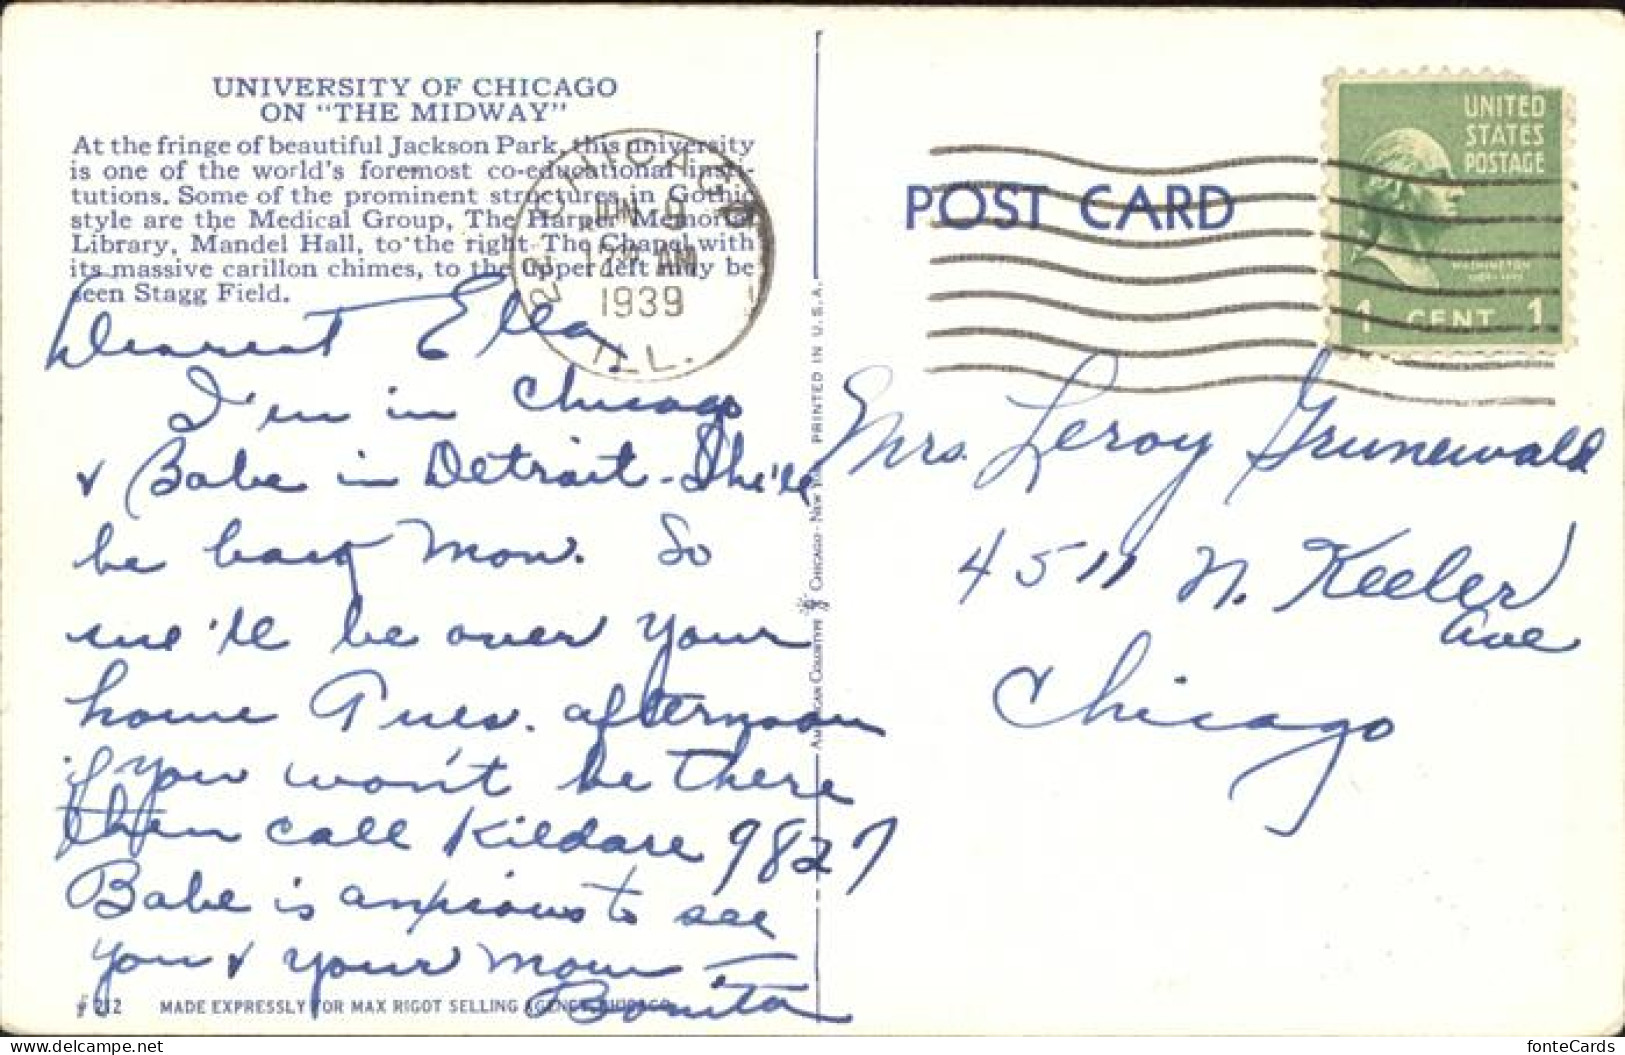 UNIVERSITY OF CHICAGO
ON "THE MIDWAY"
At the fringe of beautiful Jackson Park, this university
is one of the world's foremost co-educational insti-
tutions. Some of the prominent structures in Gothic
style are the Medical Group, The Harper Memorial
Library, Mandel Hall, to the right The Chapel with
its massive carillon chimes, to the upper left may be
seen Stagg Field.
Dearest Ella,
I'm in Chicago
& Babe in Detroit - She'll
be back Mon. So
we'll be over your
home Tues. afternoon
if you won't be there
then call Kildare 9827
Babe is anxious to see
you & your mom -
Bonita
212 MADE EXPRESSLY FOR MAX RIGOT SELLING AGENCY, CHICAGO
AMERICAN COLORTYPE CHICAGO - NEW YORK PRINTED IN U.S.A.
CHICAGO
JUN
12 AM
1939
ILL.
POST CARD
UNITED
STATES
POSTAGE
WASHINGTON
1 CENT 1
Mrs. Leroy Grunewald
4511 N. Keeler
Ave
Chicago
fonteCards
https://www.delcampe.net